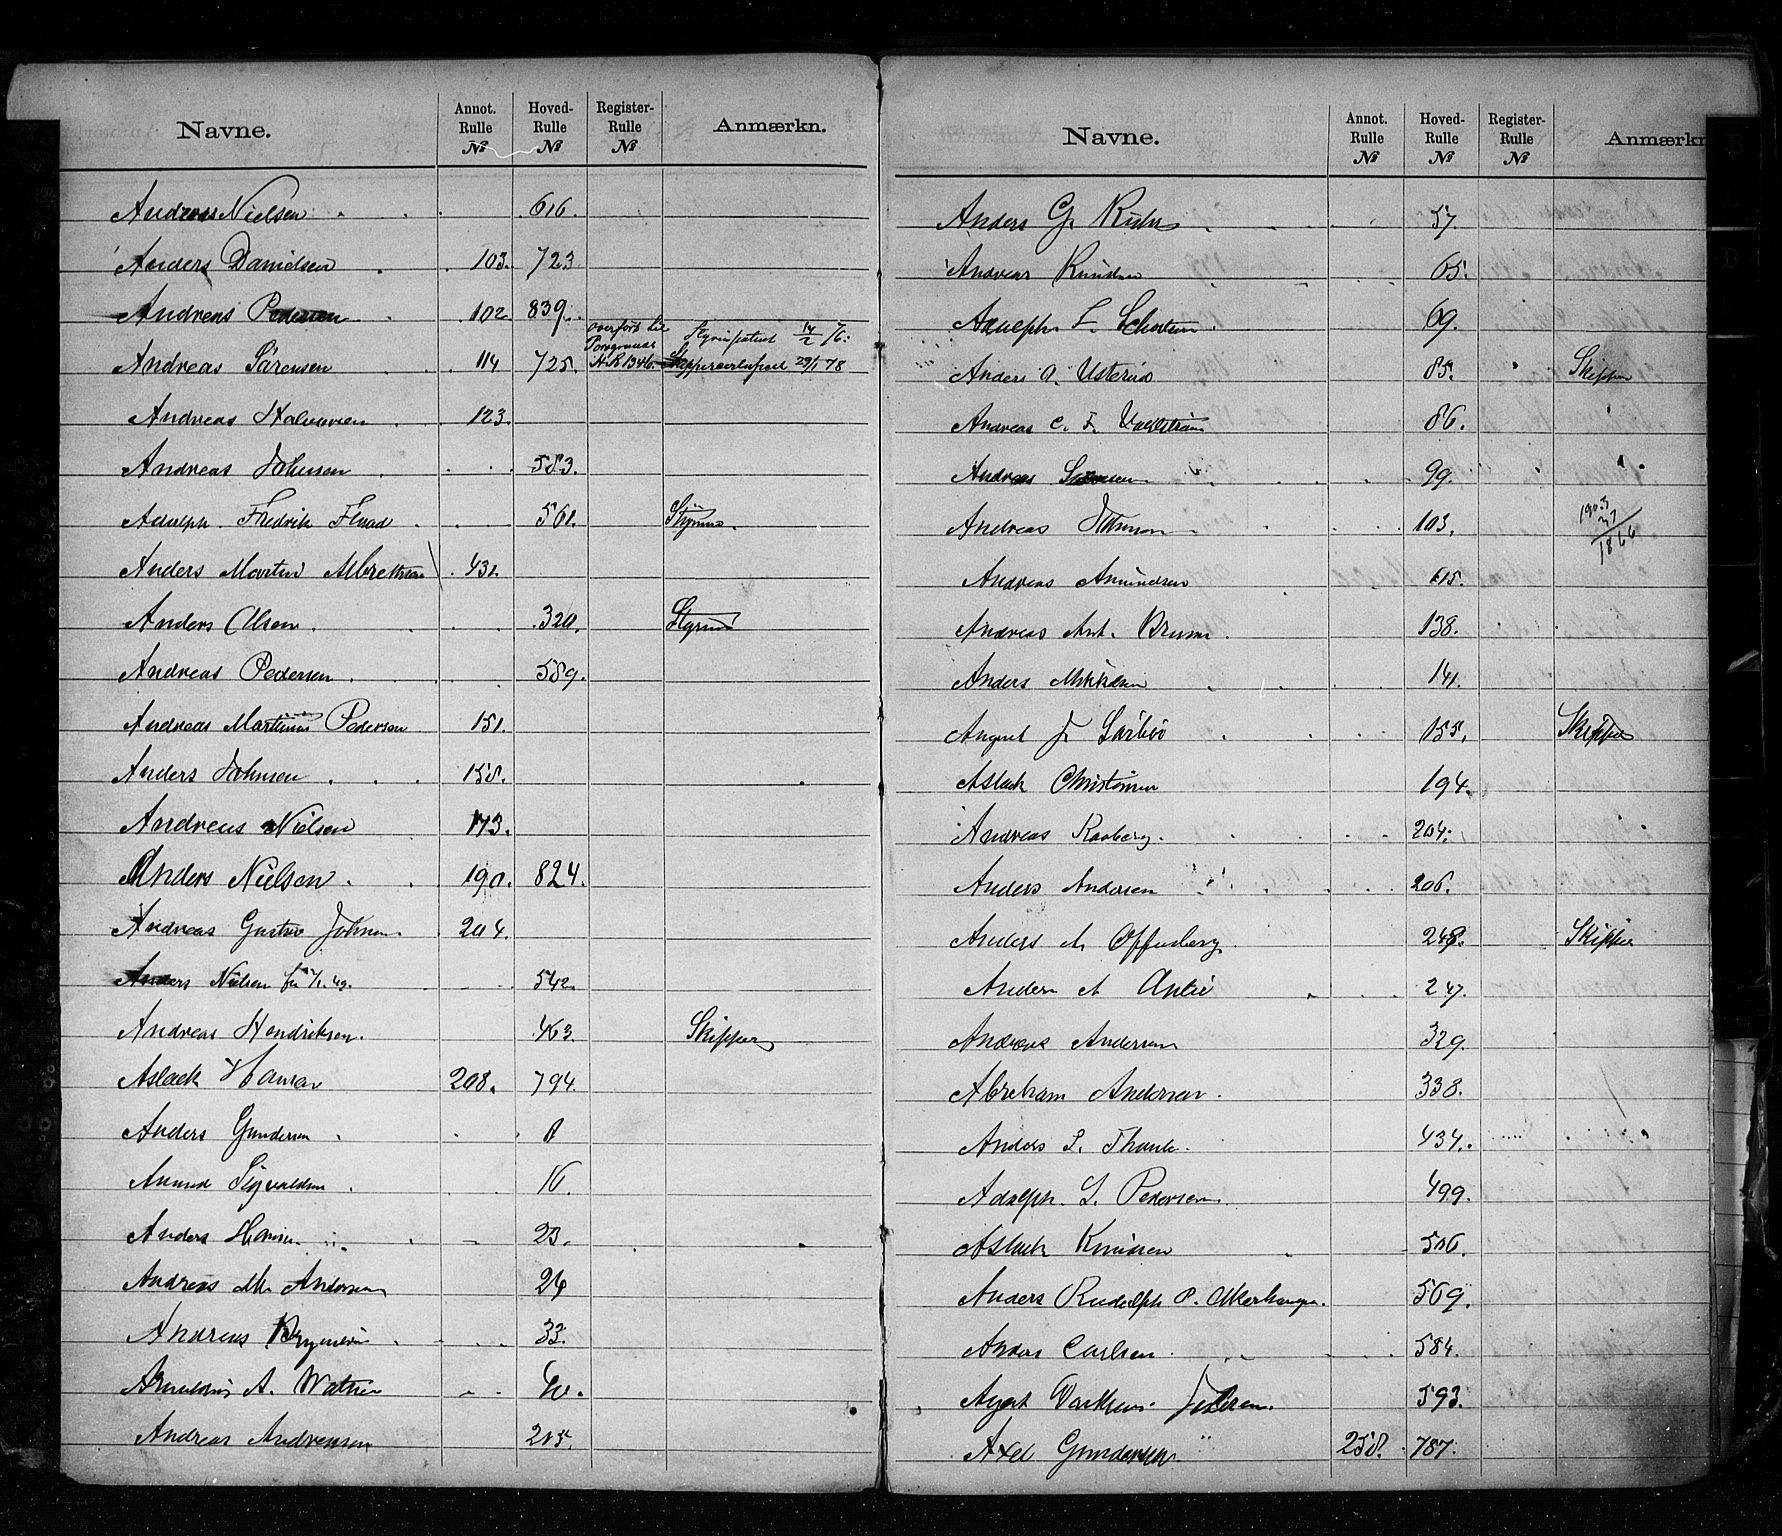 Navne. Annot. Rulle № Hoved-Rulle № Register-Rulle № Anmærkn.
Andreas Nielsen 616.
Anders Danielsen 103. 723.
Andreas Pedersen 102 839.
overført til Styrmpatent 14/2 76.
Andreas Sörensen 114 725. Porsgrunds H.R 1346. 29/1 78
Andreas Halvorsen 123.
Andreas Johnsen 583.
Adolph Fredrik Flood 561. Styrmd.
Anders Martin Albretsen 431.
Anders Olsen 320. Styrmd
Andreas Pedersen 589.
Andreas Martinius Pedersen 151.
Anders Johnsen 158.
Andreas Nielsen 173.
Anders Nielsen 190. 824.
Andreas Gustav Johnsen 204.
Anders Nielsen 542.
Andreas Hendriksen. 463 Skipper
Aslack Hansen 208. 794.
Anders Gundersen 8
Amund Sigvaldsen 16.
Anders Hansen 23.
Andreas M. Andersen 26
Andreas 33.
A. 40.
Andreas Andreassen 205.
Navne. Annot. Rulle № Hoved-Rulle № Register-Rulle № Anmærkn
Anders G. 57.
Andreas Knudsen 65.
Adolph L. 69.
Anders O. Usterud 85. Skipper
Andreas C. F. Vahlstrøm 86. "
Andreas 99. "
Andreas Johnson 103.
1903
37
1866
Andreas Amundsen 115.
Andreas Ant. Bruun. 138.
Anders Mikkelsen 141.
August J. 155. Skipper
Aslack Christensen 194.
Andreas Raaberg. 204.
Anders Andersen 206.
Anders A. Offenberg. 248. Skipper
Anders A. 247.
Andreas Andersen 329.
Abraham Andersen. 338.
Anders L. 434.
Adolph L. Pedersen 499.
Aslack Knudsen 506.
Anders Rudolph P. 569.
Anders Carlsen. 584.
Pedersen. 593.
Axel Gundersen 258. 787.